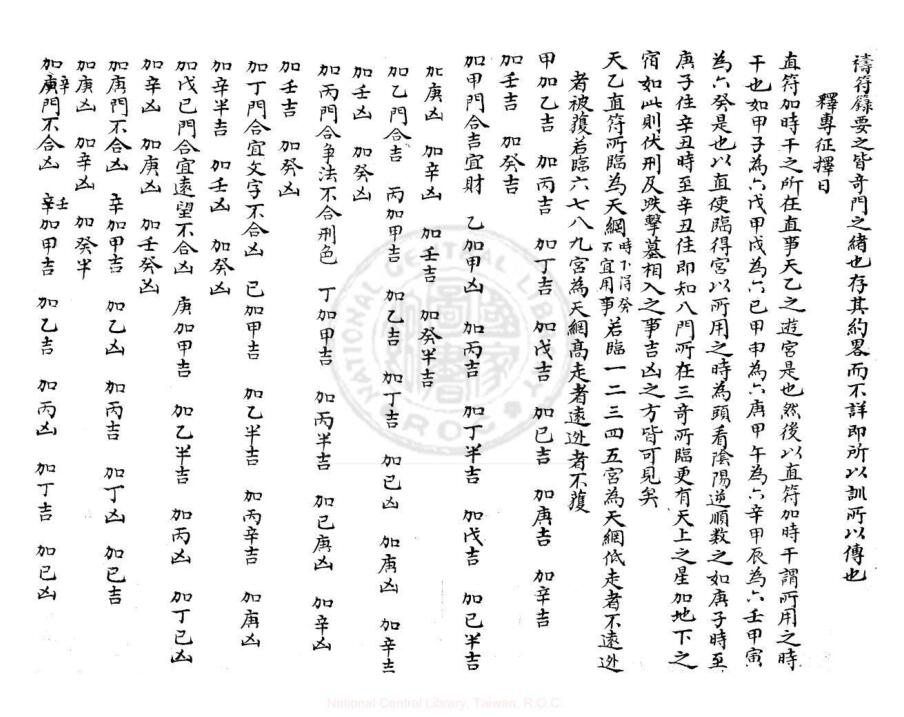 禱符籙要之皆奇門之緒也存其約畧而不詳即所以訓所以傳也
釋專征擇日
直符加時干之所在直事天乙之遊宮是也然後以直符加時干謂所用之時
干也如甲子為六戊甲戌為六己甲申為六庚甲午為六辛甲辰為六壬甲寅
為六癸是也以直使臨得宮以所用之時為頭看陰陽逆順數之如庚子時至
庚子住辛丑時至辛丑住即知八門所在三奇所臨更有天上之星加地下之
宿如此則伏刑反墣擊墓相入之事吉凶之方皆可見矣
天乙直符所臨為天網時下得癸不宜用事若臨一二三四五宮為天網低走者不遠逃
者被獲若臨六七八九宮為天網高走者遠逃者不獲
甲加乙吉 加丙吉 加丁吉 加戊吉 加己吉 加庚吉 加辛吉
加壬吉 加癸吉
加甲門合吉宜財 乙加甲凶 加丙吉 加丁半吉 加戊吉 加己半吉
加庚凶 加辛凶 加壬吉 加癸半吉
加乙門合吉 丙加甲吉 加乙吉 加丁吉 加己凶 加庚凶 加辛吉
加壬凶 加癸凶
加丙門合爭法不合刑色 丁加甲吉 加丙半吉 加己庚凶 加辛凶
加壬吉 加癸凶
加丁門合宜文字不合凶 己加甲吉 加乙半吉 加丙辛吉 加庚凶
加辛半吉 加壬凶 加癸凶
加戊己門合宜遠望不合凶 庚加甲吉 加乙半吉 加丙凶 加丁己凶
加辛凶 加庚凶 加壬癸凶
加庚門不合凶 辛加甲吉 加乙凶 加丙吉 加丁凶 加己吉
加庚凶 加辛凶 加癸半
加辛庚門不合凶 辛壬加甲吉 加乙吉 加丙凶 加丁吉 加己凶
National Central Library, Taiwan, R.O.C.